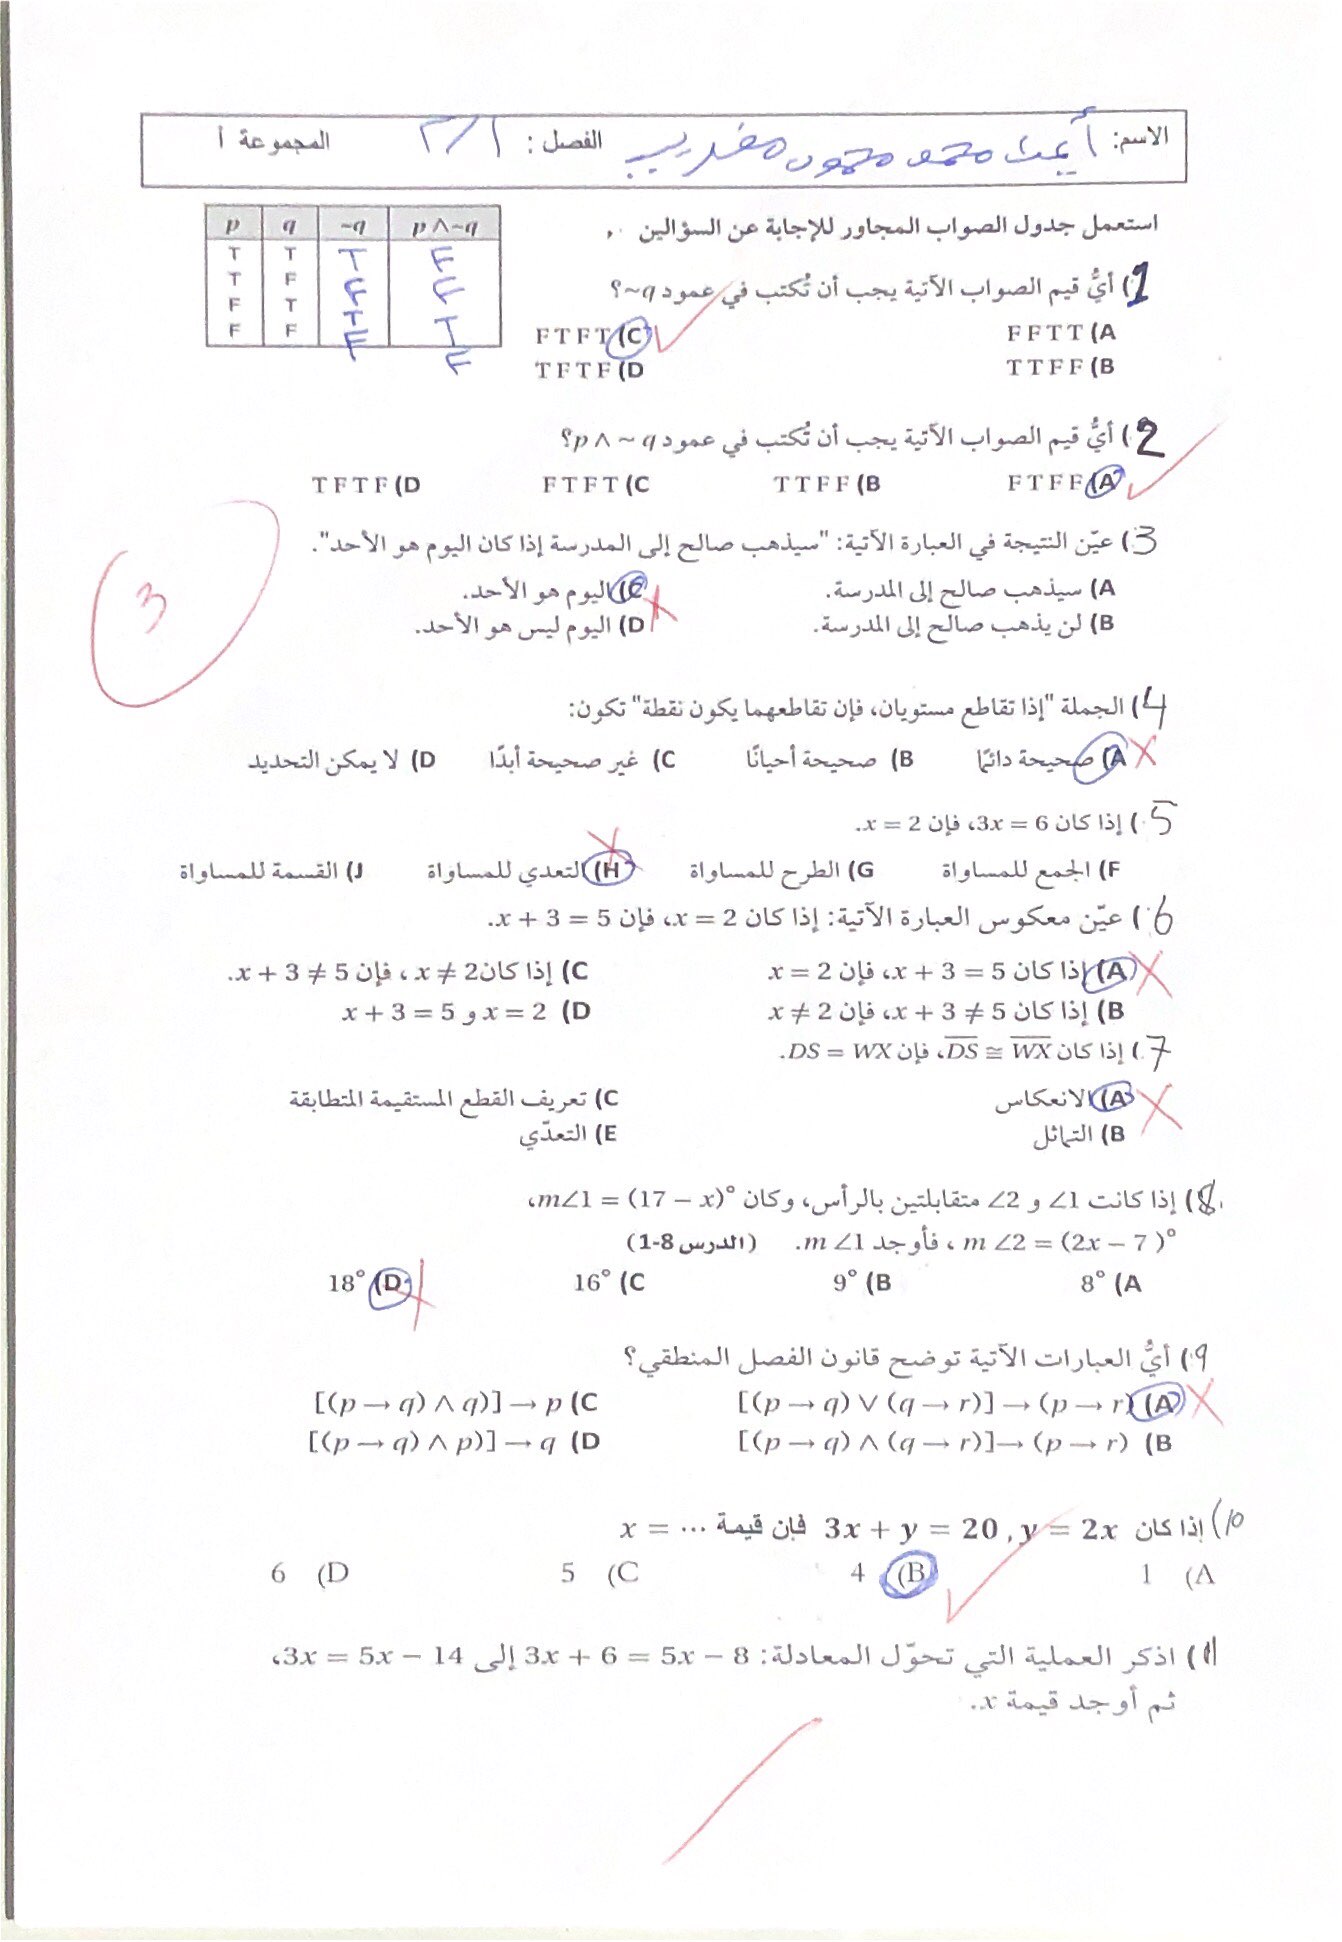 الاسم: أيمن محمد محمود مغربي الفصل: ٢/١ المجموعة أ
استعمل جدول الصواب المجاور للإجابة عن السؤالين .
p q ~q p ∧ ~q
T T T F
T F F F
F T T T
F F F F
1) أيُّ قيم الصواب الآتية يجب أن تُكتب في عمود ~q؟
A) F F T T C) F T F T
B) T T F F D) T F T F
2) أيُّ قيم الصواب الآتية يجب أن تُكتب في عمود p ∧ ~ q؟
A) F T F F B) T T F F C) F T F T D) T F T F
3) عيّن النتيجة في العبارة الآتية: "سيذهب صالح إلى المدرسة إذا كان اليوم هو الأحد".
A) سيذهب صالح إلى المدرسة. C) اليوم هو الأحد.
B) لن يذهب صالح إلى المدرسة. D) اليوم ليس هو الأحد.
3
4) الجملة "إذا تقاطع مستويان، فإن تقاطعهما يكون نقطة" تكون:
A) صحيحة دائمًا B) صحيحة أحيانًا C) غير صحيحة أبدًا D) لا يمكن التحديد
5) إذا كان 3x = 6، فإن x = 2.
F) الجمع للمساواة G) الطرح للمساواة H) التعدي للمساواة J) القسمة للمساواة
6) عيّن معكوس العبارة الآتية: إذا كان x = 2، فإن x + 3 = 5.
A) إذا كان x + 3 = 5، فإن x = 2 C) إذا كان x ≠ 2، فإن x + 3 ≠ 5.
B) إذا كان x + 3 ≠ 5، فإن x ≠ 2 D) x = 2 و x + 3 = 5
7) إذا كان DS ≅ WX، فإن DS = WX.
A) الانعكاس C) تعريف القطع المستقيمة المتطابقة
B) التماثل E) التعدّي
8) إذا كانت ∠1 و ∠2 متقابلتين بالرأس، وكان m∠1 = (17 − x)°،
m ∠2 = (2x − 7 )° ، فأوجد m ∠1. (الدرس 8-1)
A) 8° B) 9° C) 16° D) 18°
9) أيُّ العبارات الآتية توضح قانون الفصل المنطقي؟
A) [(p → q) ∨ (q → r)] → (p → r) C) [(p → q) ∧ q)] → p
B) [(p → q) ∧ (q → r)] → (p → r) D) [(p → q) ∧ p)] → q
10) إذا كان 3x + y = 20 , y = 2x فإن قيمة ... = x
A) 1 B) 4 C) 5 D) 6
11) اذكر العملية التي تحوّل المعادلة: 3x + 6 = 5x − 8 إلى 3x = 5x − 14،
ثم أوجد قيمة x.